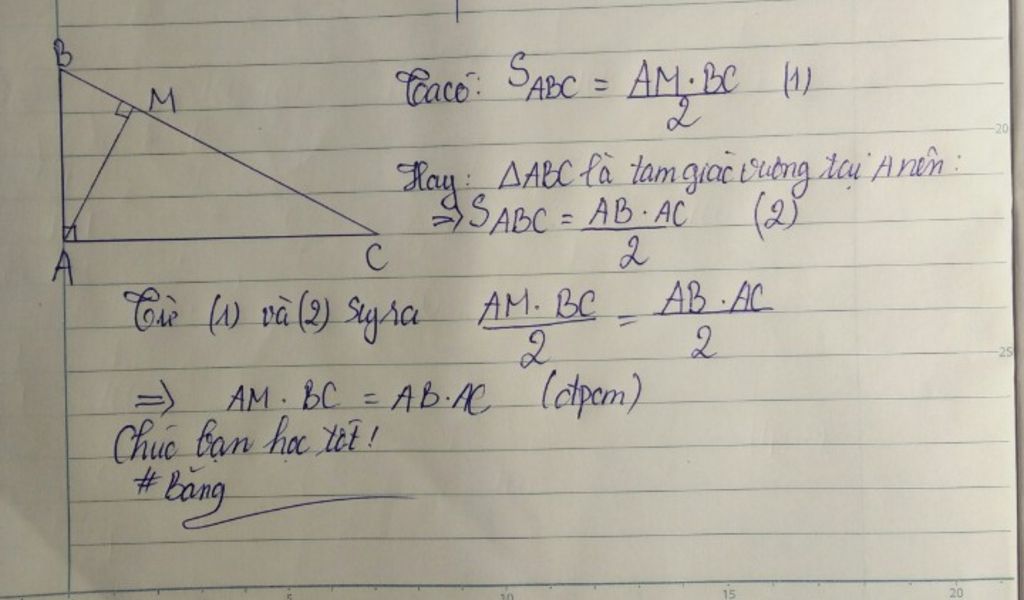 B
M
A
C
Ta có: S_ABC = AM·BC / 2 (1)
Hay: ΔABC là tam giác vuông tại A nên:
=> S_ABC = AB·AC / 2 (2)
Từ (1) và (2) suy ra AM·BC / 2 = AB·AC / 2
=> AM·BC = AB·AC (đtpcm)
Chúc bạn học tốt!
# Băng
20
25
5
10
15
20